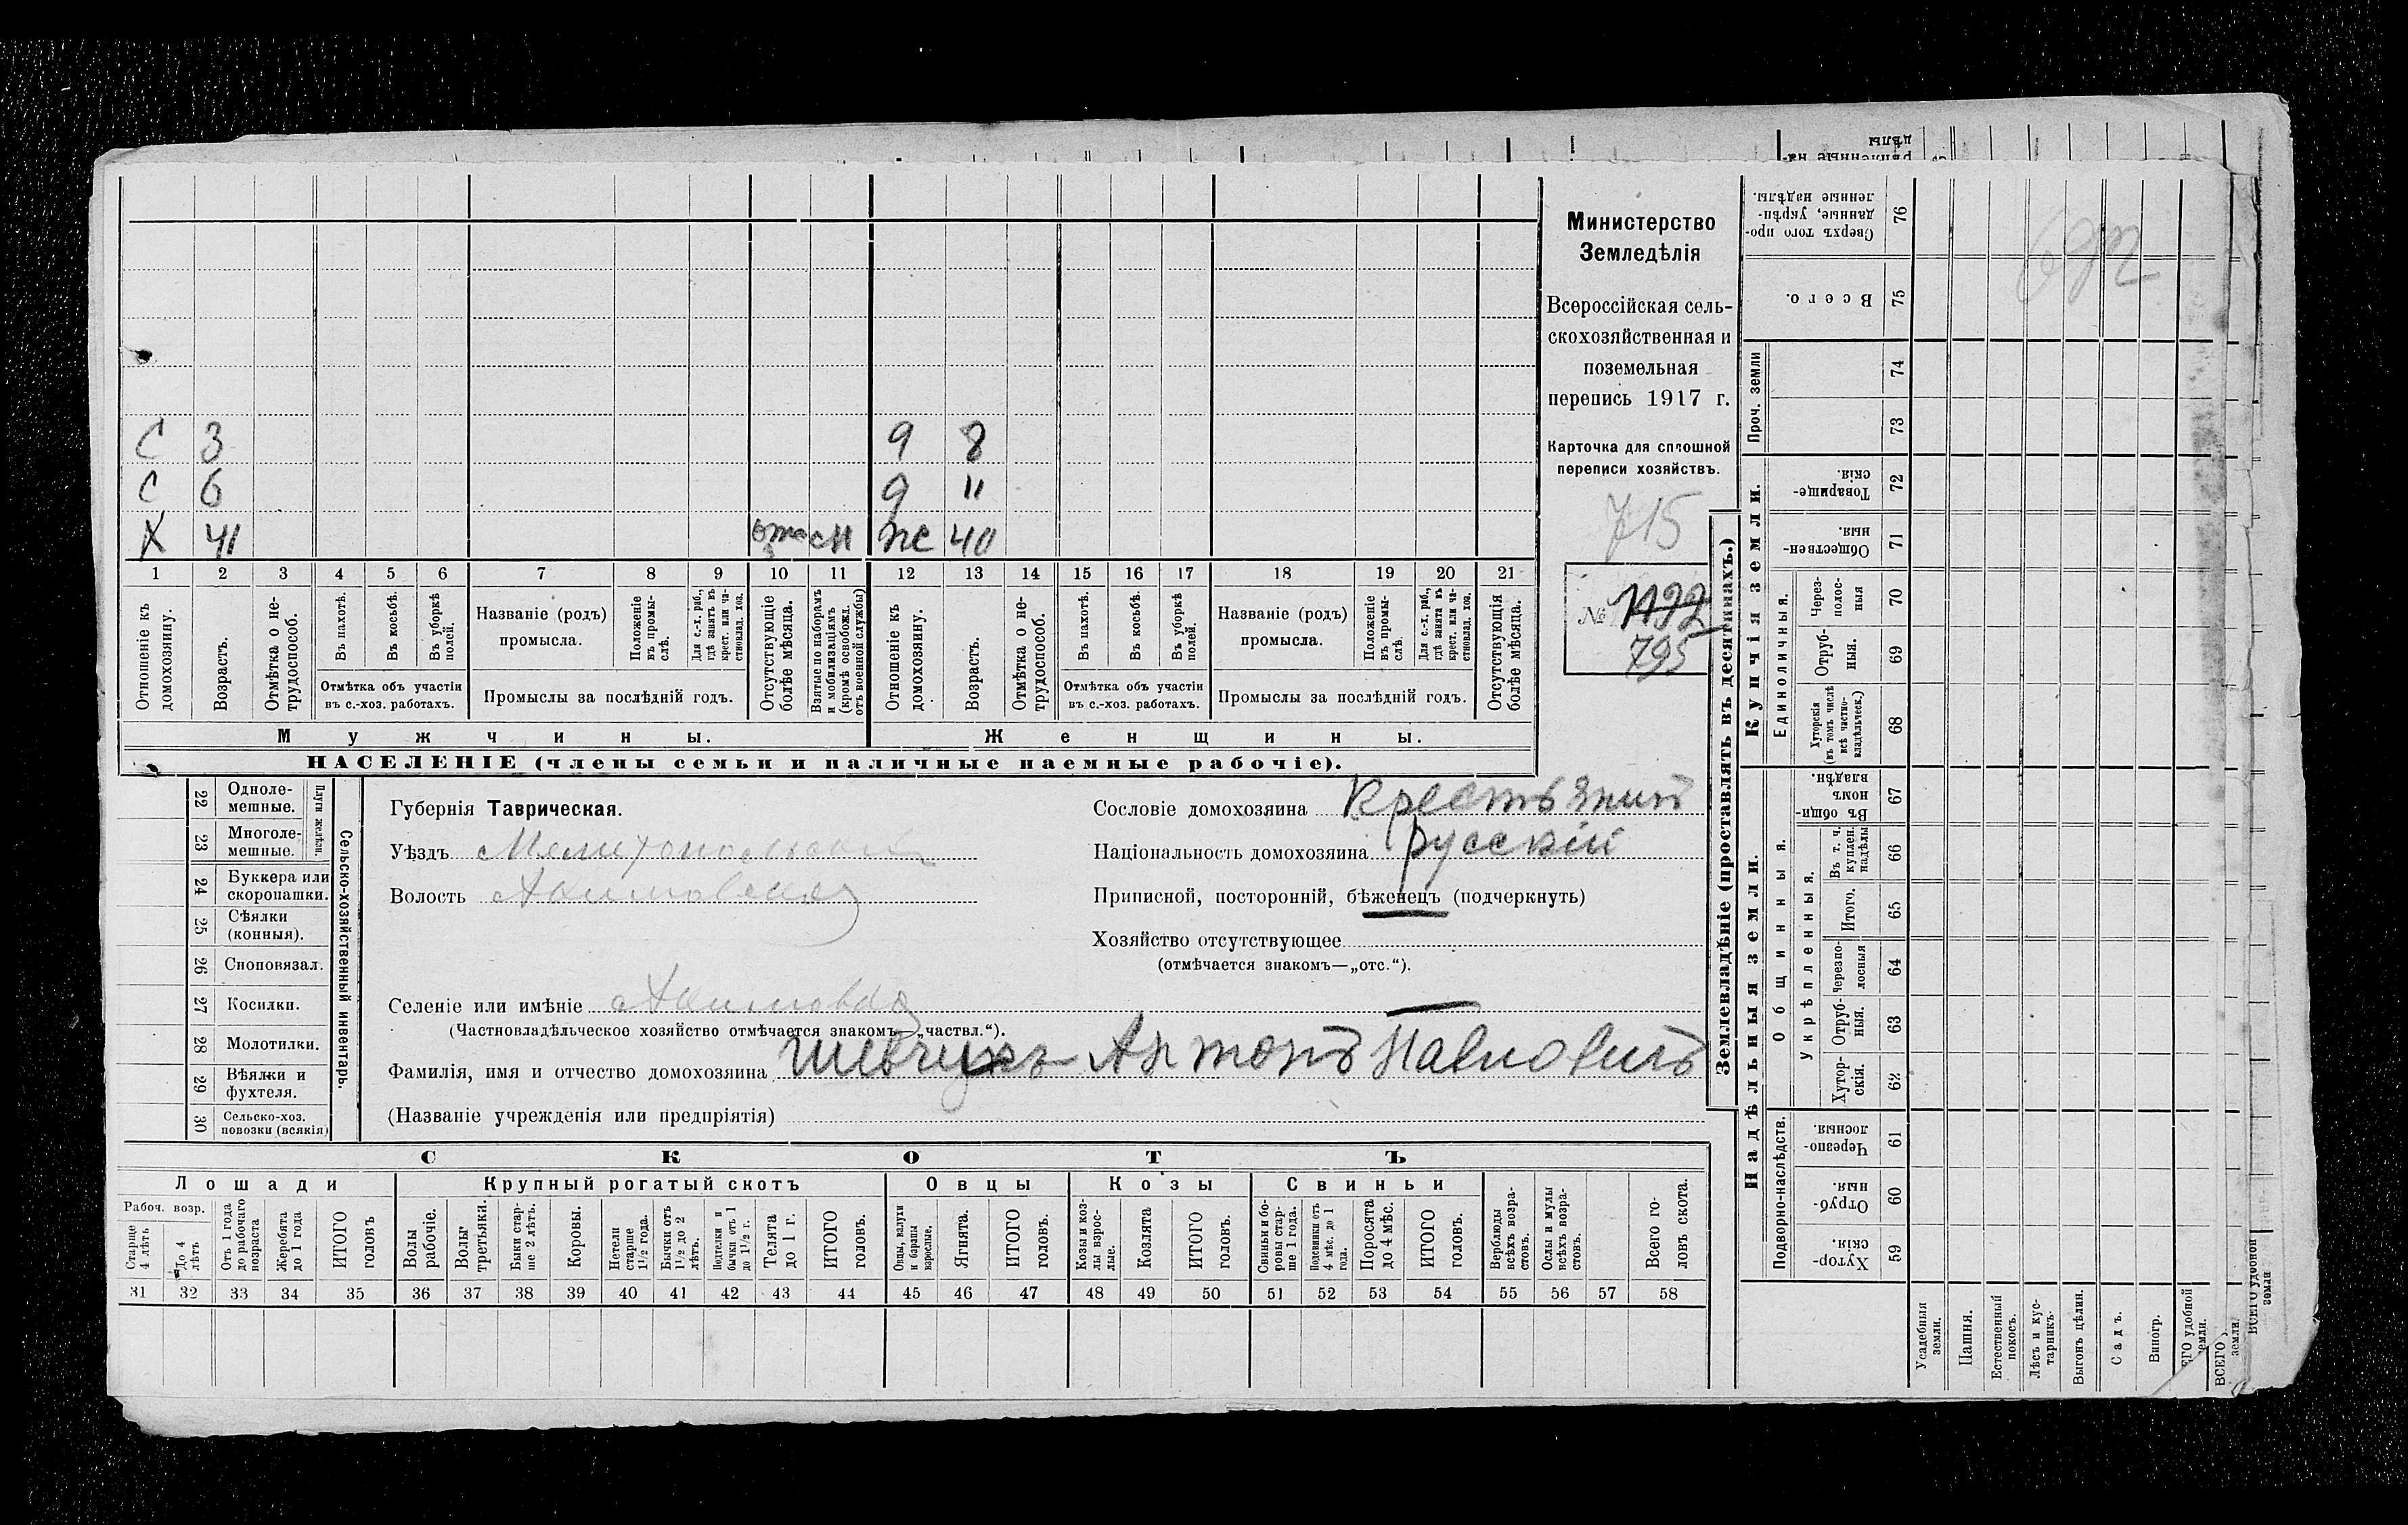 С 3 9 8
С 6 9 11
Х 41 отс сл ж 40
1 2 3 4 5 6 7 8 9 10 11 12 13 14 15 16 17 18 19 20 21
Отношеніе къ домохозяину.
Возрастъ.
Отмѣтка о не-
трудоспособ.
Въ пахотѣ.
Въ косьбѣ.
Въ уборкѣ
полей.
Отмѣтка объ участіи
въ с.-хоз. работахъ.
Названіе (родъ)
промысла.
Положеніе
въ промы-
слѣ.
Для с.-х. раб.,
гдѣ занятъ въ
крест. или ча-
стновлад. хоз.
Промыслы за послѣдній годъ.
Отсутствующіе
болѣе мѣсяца.
Взятые по наборамъ
и мобилизаціямъ
(кромѣ освобожд.
отъ военной службы)
Отношеніе къ
домохозяину.
Возрастъ.
Отмѣтка о не-
трудоспособ.
Въ пахотѣ.
Въ косьбѣ.
Въ уборкѣ
полей.
Отмѣтка объ участіи
въ с.-хоз. работахъ.
Названіе (родъ)
промысла.
Положеніе
въ промы-
слѣ.
Для с.-х. раб.,
гдѣ занята въ
крест. или ча-
стновлад. хоз.
Промыслы за послѣдній годъ.
Отсутствующія
болѣе мѣсяца.
Мужчины.
Женщины.
НАСЕЛЕНІЕ (члены семьи и наличные наемные рабочіе).
Министерство
Земледѣлія
Всероссійская сель-
скохозяйственная и
поземельная
перепись 1917 г.
Карточка для сплошной
переписи хозяйствъ.
715
№ 1192
795
22 Одноле-
мешные.
23 Многоле-
мешные.
Плуги желѣзн.
24 Буккера или
скоропашки.
25 Сѣялки
(конныя).
26 Сноповязал.
27 Косилки.
28 Молотилки.
29 Вѣялки и
фухтеля.
30 Сельско-хоз.
повозки (всякія)
Сельско-хозяйственный инвентарь.
Губернія Таврическая.
Уѣздъ Мелитопольскій
Волость Акимовская
Селеніе или имѣніе Акимовка
(Частновладѣльческое хозяйство отмѣчается знакомъ—„частвл.“).
Фамилія, имя и отчество домохозяина Шевчукъ Антонъ Павловичъ
(Названіе учрежденія или предпріятія)
Сословіе домохозяина Крестьянинъ
Національность домохозяина русскій
Приписной, посторонній, бѣженецъ (подчеркнуть)
Хозяйство отсутствующее
(отмѣчается знакомъ—„отс.“).
СКОТЪ
Лошади
Рабоч. возр.
Старше
4 лѣтъ
До 4
лѣтъ
Отъ 1 года
до рабочаго
возраста
Жеребята
до 1 года
ИТОГО
головъ
Крупный рогатый скотъ
Волы
рабочіе.
Волы
третьяки.
Быки стар-
ше 2 лѣтъ.
Коровы.
Нетели
старше
1½ года.
Бычки отъ
1½ до 2
лѣтъ.
Подтелки и
бычки отъ 1
до 1½ г.
Телята
до 1 г.
ИТОГО
головъ.
Овцы
Овцы, валухи
и бараны
взрослые.
Ягнята.
ИТОГО
головъ.
Козы
Козы и коз-
лы взрос-
лые.
Козлята
ИТОГО
головъ.
Свиньи
Свиньи и бо-
ровы стар-
ше 1 года.
Подсвинки отъ
4 мѣс. до 1
года.
Поросята
до 4 мѣс.
ИТОГО
головъ.
Верблюды
всѣхъ возра-
стовъ.
Ослы и мулы
всѣхъ возра-
стовъ.
Всего го-
ловъ скота.
31 32 33 34 35 36 37 38 39 40 41 42 43 44 45 46 47 48 49 50 51 52 53 54 55 56 57 58
Землевладѣніе (проставлять въ десятинахъ.)
Купчія земли.
Сверхъ того про-
данные, укрѣп-
ленные надѣлы. 76
Всего. 75
Проч. земли
74
73
Товарище-
скія. 72
Обществен-
ныя. 71
Единоличныя.
Через-
полос-
ныя 70
Отруб-
ныя. 69
Хуторскія
(въ томъ числѣ
всѣ частно-
владѣльческ.) 68
Надѣльныя земли.
Общинныя.
Въ общи
номъ
владѣн. 67
Укрѣпленныя.
Въ т. ч.
куплен.
надѣлы 66
Итого. 65
Черезпо-
лосныя 64
Отруб-
ныя. 63
Хутор-
скія. 62
Подворно-наслѣдств.
Черезпо-
лосныя. 61
Отруб-
ныя. 60
Хутор-
скія. 59
Усадебныя
земли.
Пашня.
Естественный
покосъ.
Лѣсъ и кус-
тарникъ.
Выгонъ цѣлин.
Садъ.
Виногр.
ЕГО удобной
земли.
ВСЕГО
земли.
ВСЕГО удобной
земли